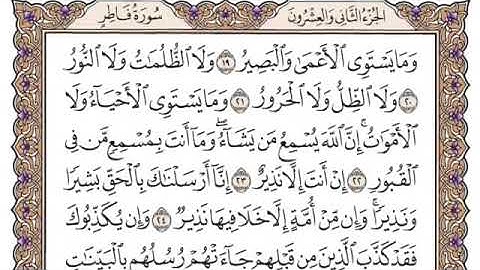 الجزء الثاني والعشرون سورة فاطر
وَمَا يَسْتَوِي الْأَعْمَىٰ وَالْبَصِيرُ ١٩ وَلَا الظُّلُمَاتُ وَلَا النُّورُ
٢٠ وَلَا الظِّلُّ وَلَا الْحَرُورُ ٢١ وَمَا يَسْتَوِي الْأَحْيَاءُ وَلَا
الْأَمْوَاتُ إِنَّ اللَّهَ يُسْمِعُ مَن يَشَاءُ وَمَا أَنتَ بِمُسْمِعٍ مَّن فِي
الْقُبُورِ ٢٢ إِنْ أَنتَ إِلَّا نَذِيرٌ ٢٣ إِنَّا أَرْسَلْنَاكَ بِالْحَقِّ بَشِيرًا
وَنَذِيرًا وَإِن مِّنْ أُمَّةٍ إِلَّا خَلَا فِيهَا نَذِيرٌ ٢٤ وَإِن يُكَذِّبُوكَ
فَقَدْ كَذَّبَ الَّذِينَ مِن قَبْلِهِمْ جَاءَتْهُمْ رُسُلُهُم بِالْبَيِّنَاتِ